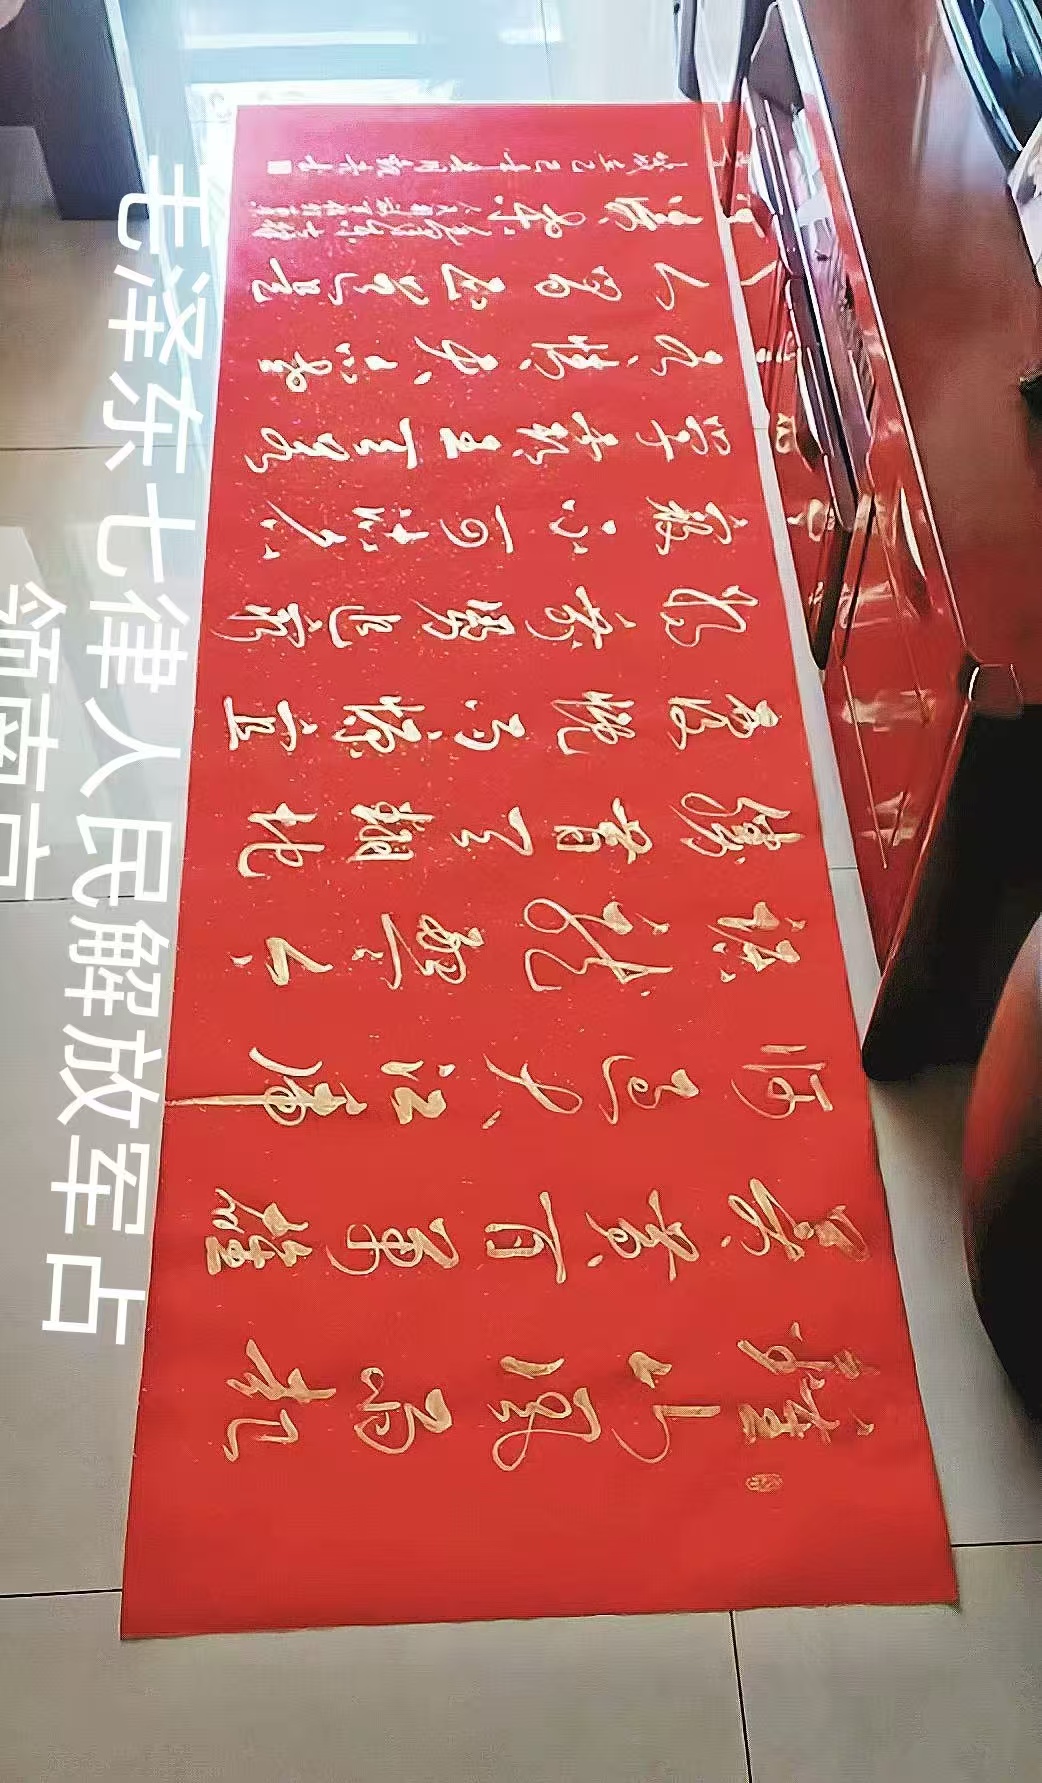 毛泽东七律人民解放军占
领南京
钟山风雨起
苍黄百万雄
师过大江虎
踞龙盘今
胜昔天翻地
覆慨而慷宜
将剩勇追穷
寇不可沽名
学霸王天若
有情天亦老
人间正道是
沧桑